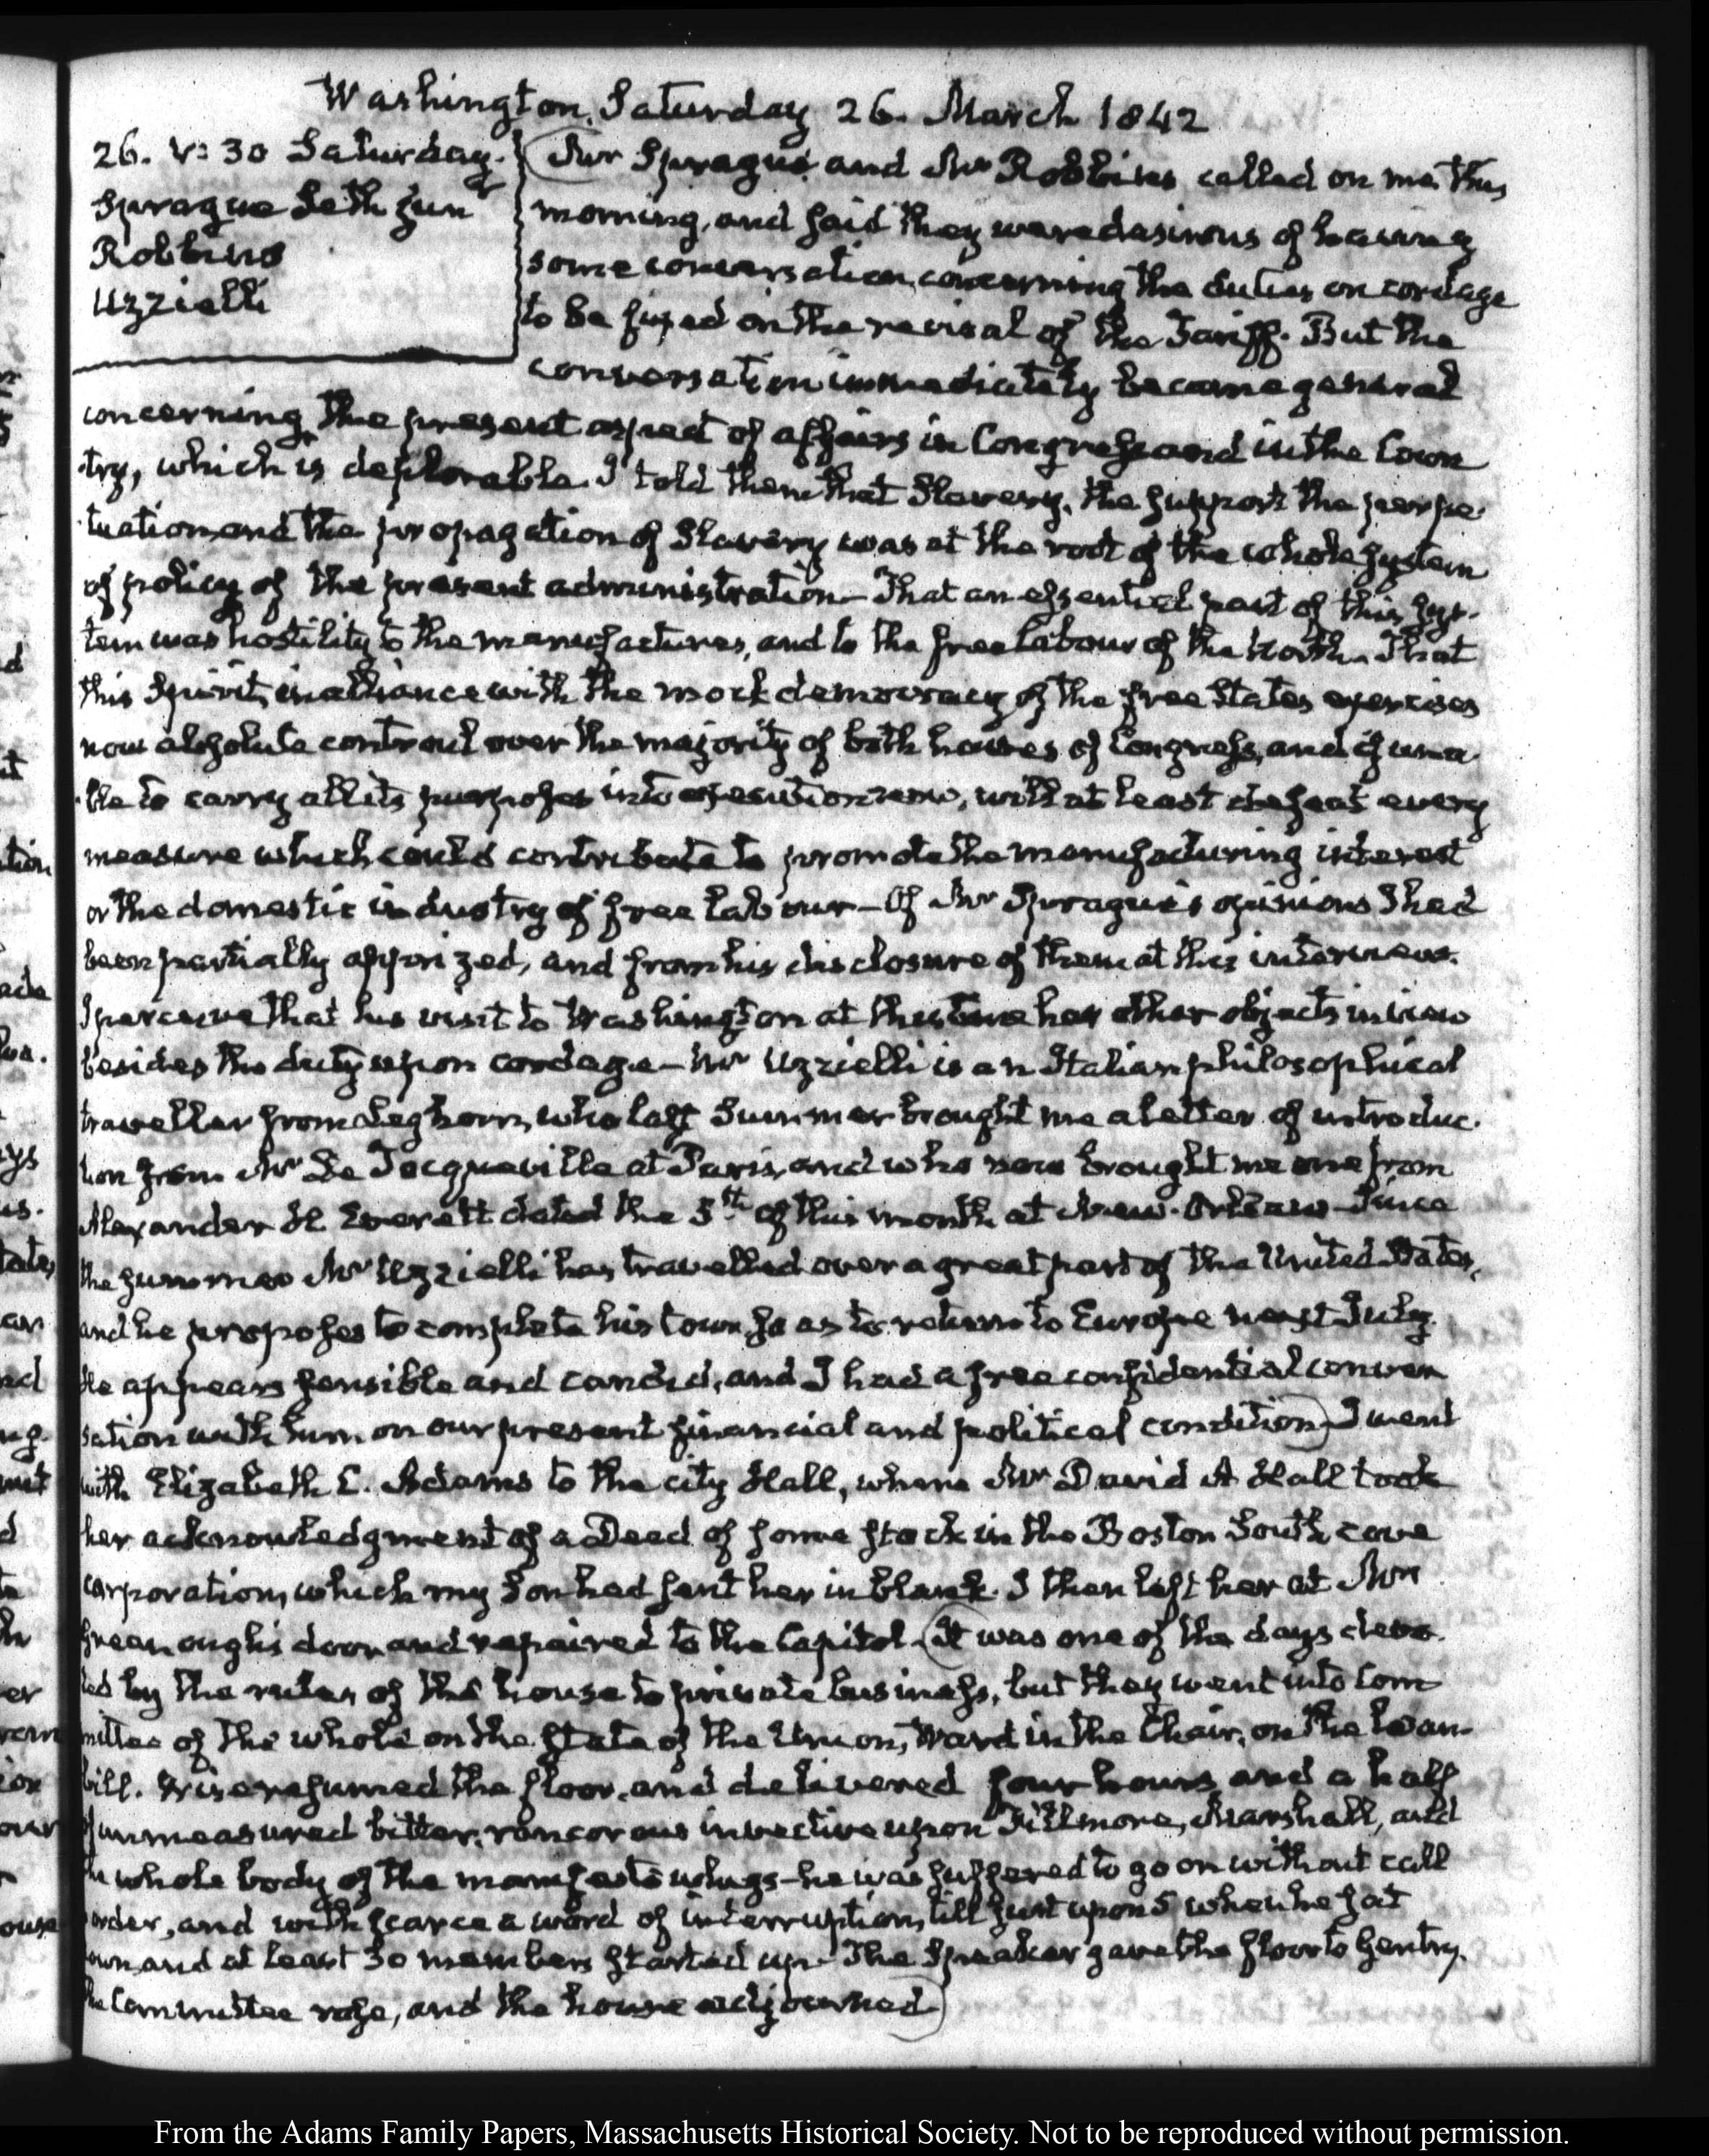 Washington, Saturday 26. March 1842
26. V: 30 Saturday.
Sprague Seth junr
Robbins
Uzzielli
Mr Sprague and Mr Robbins called on me this
morning, and said they were desirous of having
some conversation, concerning the duties on cordage
to be fixed in the revisal of the Tariff. But the
conversation immediately became general
concerning the present aspect of affairs in Congress and in the Coun
try, which is deplorable. I told them that Slavery, the support the perpe-
tuation and the propagation of Slavery was at the root of the whole system
of policy of the present administration— That an essential part of this sys-
tem was hostility to the manufactures, and to the free labour of the North. That
this Spirit, in alliance with the mock democracy of the free States exercises
now absolute controul over the majority of both houses of Congress, and if una-
ble to carry all its purposes into execution now, will at least defeat every
measure which could contribute to promote the manufacturing interest
or the domestic industry of free labour— Of Mr Sprague's opinions I had
been partially apprized, and from his disclosure of them at this interview.
I perceive that his visit to Washington at this time has other objects in view
besides the duty upon cordage— Mr Uzzielli is an Italian philosophical
traveller from Leghorn, who last Summer brought me a letter of introduc-
tion from Mr De Tocqueville at Paris, and who now brought me one from
Alexander H Everett dated the 5th of this month at New-Orleans— Since
the summer Mr Uzzielli has travelled over a great part of the United States,
and he proposes to complete his tour, so as to return to Europe next July.
He appears sensible and candid, and I had a free confidential conver
sation with him on our present financial and political condition) I went
with Elizabeth C. Adams to the city Hall, where Mr David A Hall took
her acknowledgment of a Deed of some stock in the Boston South cove
corporation, which my Son had sent her in blank. I then left her at Mrs
Greenough's door and repaired to the Capitol. (It was one of the days devo-
ted by the rules of the house to private business, but they went into Com
mittee of the whole on the State of the Union, Ward in the Chair, on the loan-
bill. Wise resumed the floor, and delivered four hours and a half
of unmeasured bitter, rancorous invective upon Fillmore, Marshall, and
the whole body of the manifesto whigs— he was suffered to go on without call
to order, and with scarce a word of interruption, till just upon 5 when he sat
down, and at least 30 members started up— The Speaker gave the floor to Gentry.
The Committee rose, and the house adjourned)
From the Adams Family Papers, Massachusetts Historical Society. Not to be reproduced without permission.